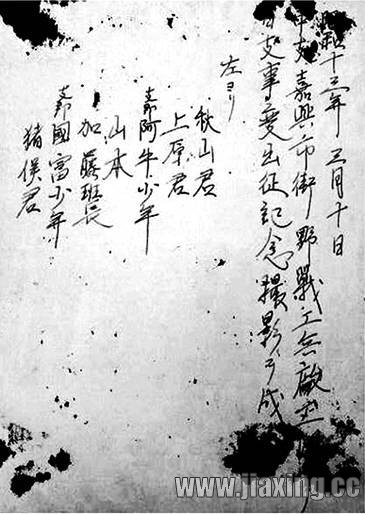 昭和十三年三月十日
中支嘉興市街野戰工
日支事變出征記念撮影ヲ成
左ヨリ
秋山君
上原君
支那阿牛少年
山本
加藤班長
支那國富少年
猪俣君
www.jiaxing.cc